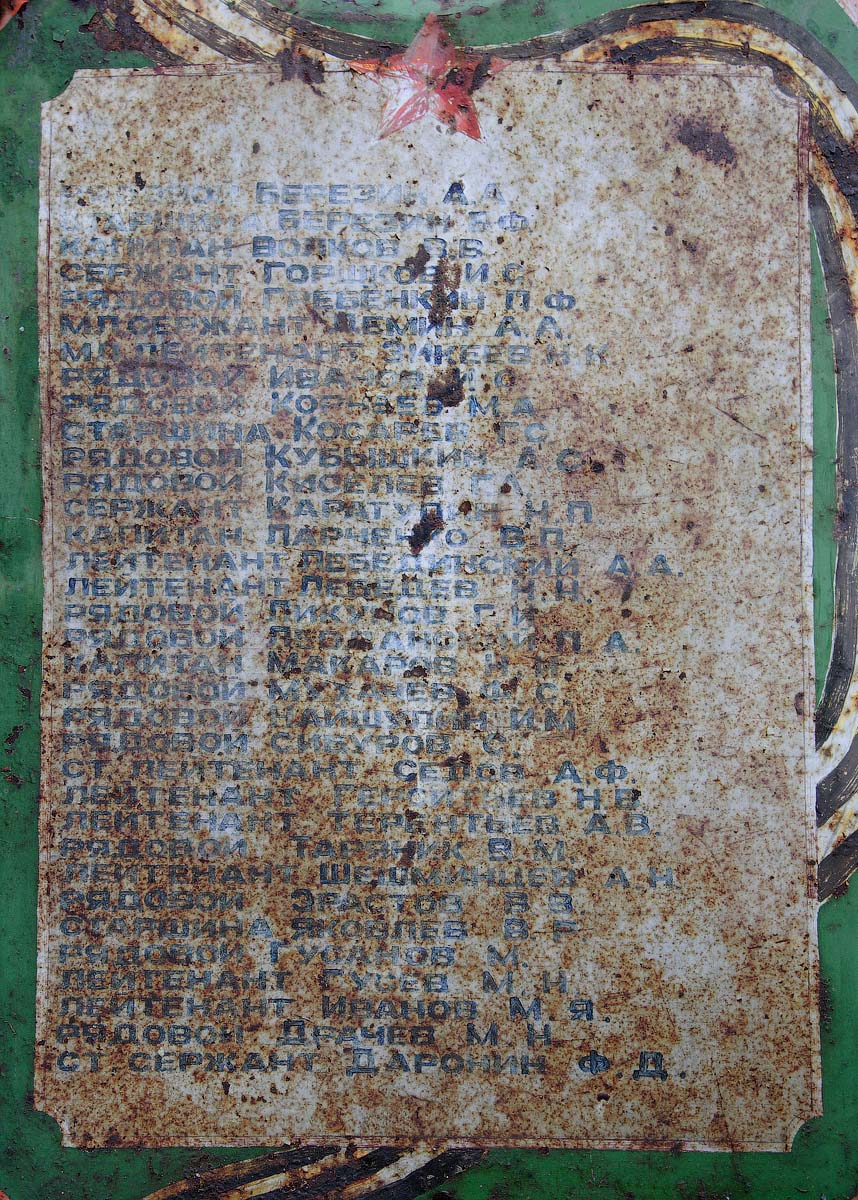 Березин А.А.
Старшина Березин Б.Ф.
Капитан Волков В.Б.
Сержант Горшков И.С.
Рядовой Гребёнкин П.Ф.
Мл.сержант Демин А.А.
Мл.лейтенант Зикеев Н.К.
Рядовой
Рядовой М.А.
Старшина Косарев Г.С.
Рядовой Кубышкин А.С.
Рядовой Киселев Г.А.
Сержант Каратупин Н.П.
Капитан Ларченко В.П.
Лейтенант Лебединский А.А.
Лейтенант Лебецев Н.Н.
Рядовой Пикунов Г.И.
Рядовой П.А.
Капитан Макаров Н.Н.
Рядовой Мухачев Ф.С.
Рядовой И.М.
Рядовой Сибуров С.
Ст лейтенант Седов А.Ф.
Лейтенант Н.В.
Лейтенант Терентьев А.В.
Рядовой В.М.
Лейтенант Шешминцев А.Н.
Рядовой Эрастов В.В.
Старшина Яковлев В.Г.
Рядовой Гусанов М.
Лейтенант Гусев М.Н.
Лейтенант Иванов М.Я.
Рядовой Драчев М.Н.
Ст.сержант Даронин Ф.Д.